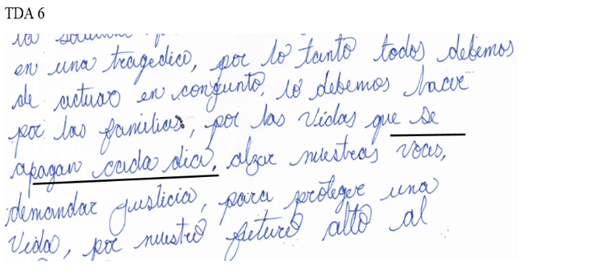 TDA 6
la
en una tragedico, por lo tanto todos debemos
de actuar en conjunto, lo debemos hacer
por las familias, por las Vidas que se
apagan cada dia, alzar nuestras voces,
demandar justicia, para proteger una
Vida, por nuestro futuro alto al